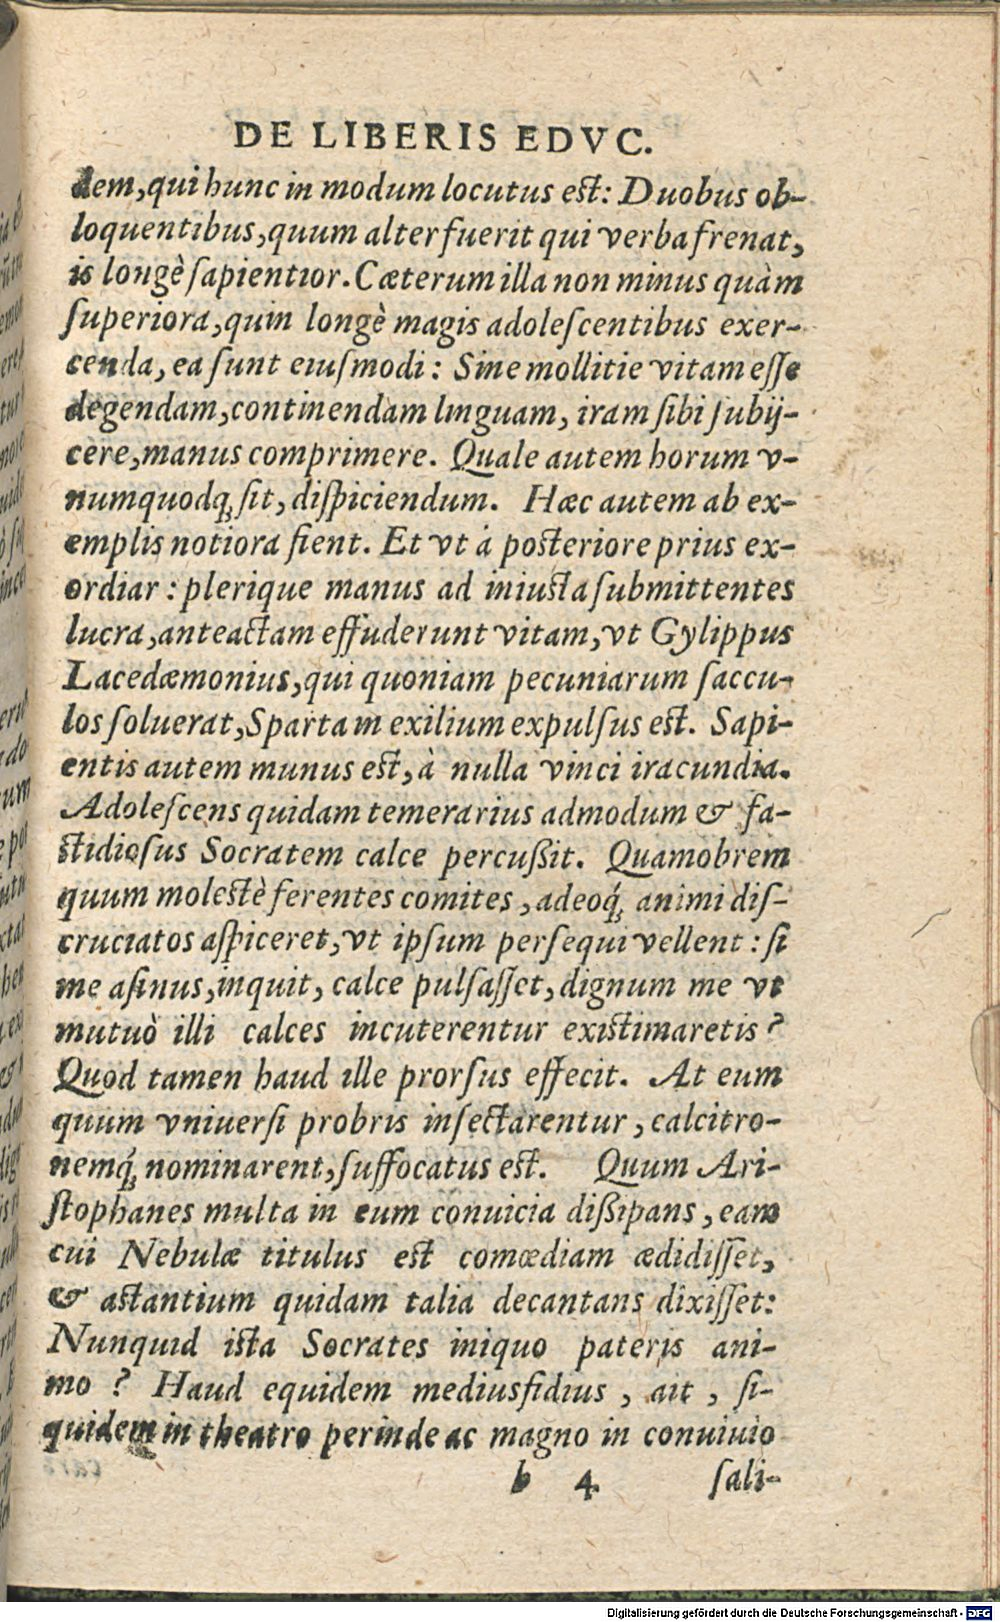 DE LIBERIS EDVC.
dem, qui hunc in modum locutus est: Duobus ob-
loquentibus, quum alter fuerit qui verba frenat,
is longè sapientior. Cæterum illa non minus quàm
superiora, quin longè magis adolescentibus exer-
cenda, ea sunt eiusmodi: Sine mollitie vitam esse
degendam, continendam linguam, iram sibi subij-
cere, manus comprimere. Quale autem horum v-
numquodq; sit, dispiciendum. Hæc autem ab ex-
emplis notiora fient. Et vt à posteriore prius ex-
ordiar: plerique manus ad iniusta submittentes
lucra, anteactam effuderunt vitam, vt Gylippus
Lacedæmonius, qui quoniam pecuniarum saccu-
los soluerat, Sparta in exilium expulsus est. Sapi-
entis autem munus est, à nulla vinci iracundia.
Adolescens quidam temerarius admodum & fa-
stidiosus Socratem calce percußit. Quamobrem
quum molestè ferentes comites, adeoq́; animi dis-
cruciatos aspiceret, vt ipsum persequi vellent: si
me asinus, inquit, calce pulsasset, dignum me vt
mutuò illi calces incuterentur existimaretis?
Quod tamen haud ille prorsus effecit. At eum
quum vniuersi probris insectarentur, calcitro-
nemq́; nominarent, suffocatus est. Quum Ari-
stophanes multa in eum conuicia dißipans, eam
cui Nebulæ titulus est comœdiam ædidisset,
& astantium quidam talia decantans dixisset:
Nunquid ista Socrates iniquo pateris ani-
mo? Haud equidem mediusfidius, ait, si-
quidem in theatro perinde ac magno in conuiuio
b 4 sali-
Digitalisierung gefördert durch die Deutsche Forschungsgemeinschaft - DFG